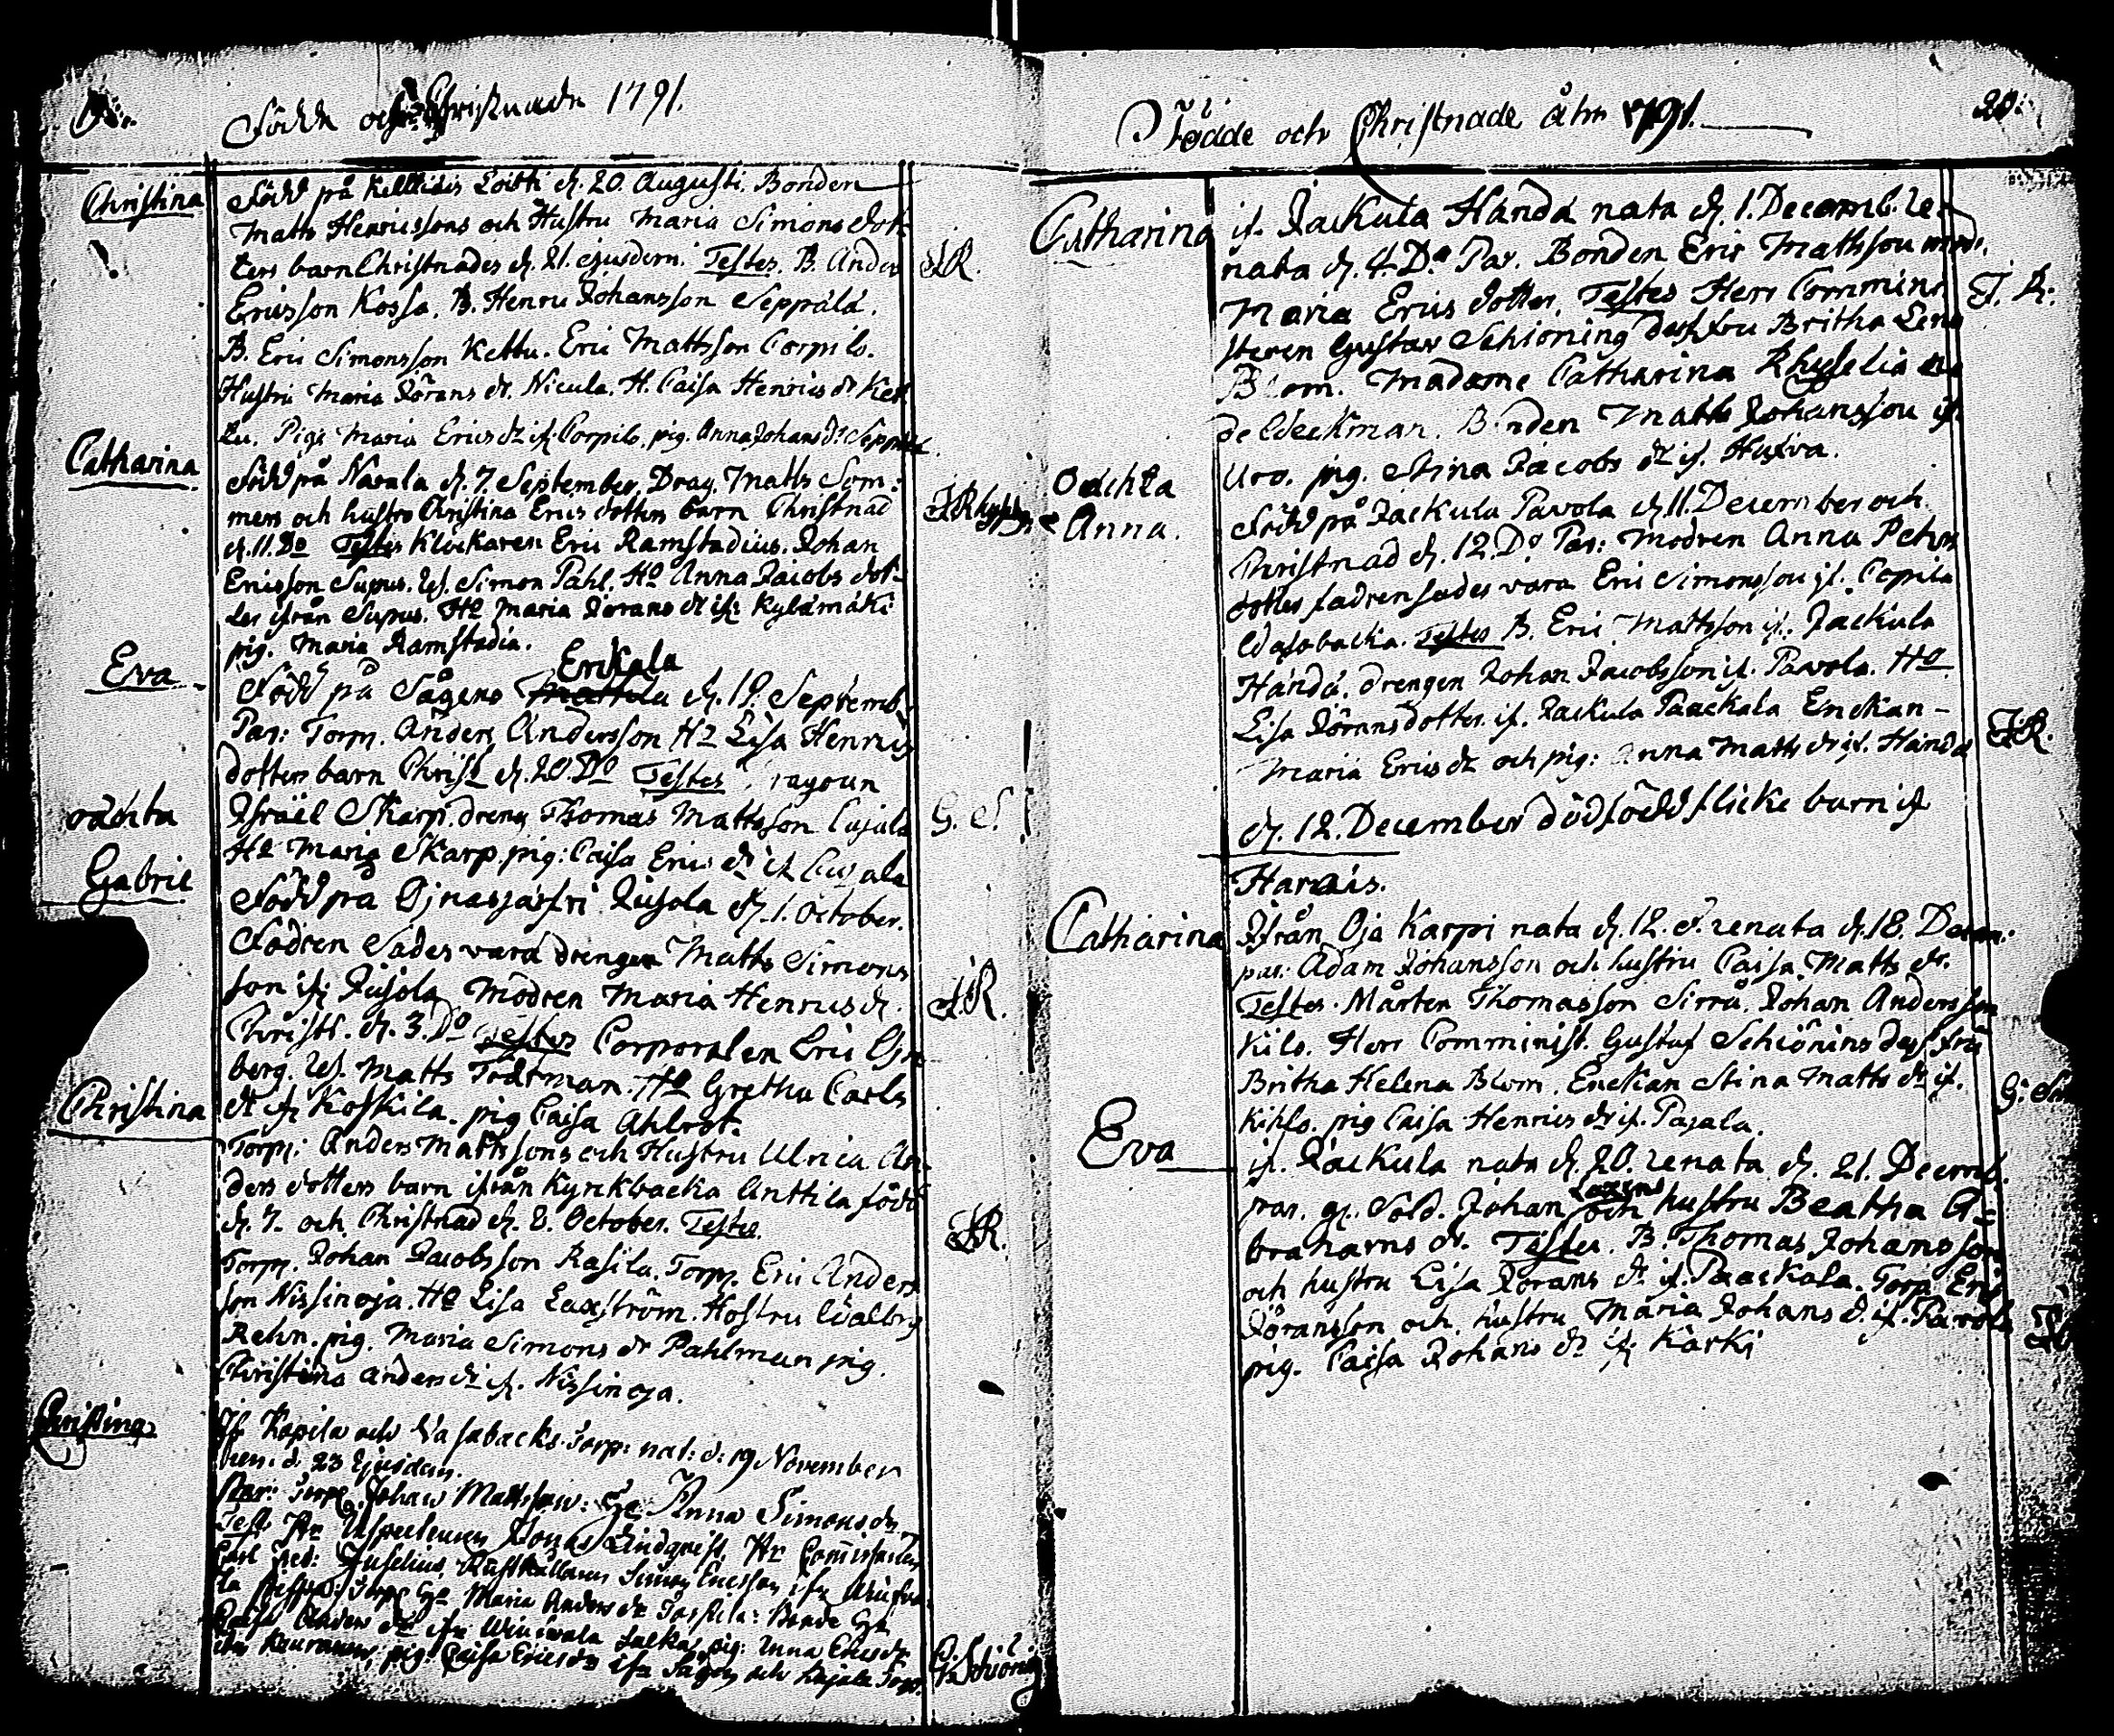 Födde och Christnade 1791.
Christina
Född på Kelldis Loitti d. 20. Augusti. Bonden
Matts Henricssons och Hustru Maria Simons dot-
ters barn Christnades d. 21. ejusdem. Testes. B. Anders
Ericsson Kossa. B. Henric Johansson Seppälä.
B. Eric Simonsson Kettu. Eric Mattsson Corpilo.
Hustru Maria Jörans dr. Nicula. H. Caisa Henrics dr Ket-
tu. Piga Maria Erics dr if. Corpilo, pig. Anna Johans dr Seppälä
J.R.
Catharina
Född på Navala d. 7. September. Drag. Matts Som-
mers och hustro Christina Erics dotters barn Christnad
d. 11. Do Testes Klockaren Eric Ramstadius. Johan
Ericsson Supus. Simon Pahl. Ho Anna Jacobs dot-
ter ifrån Supus. Ho Maria Jörans dr if. Kylämäki
pig. Maria Ramstadia.
Eva
Erickala
Född på Sågens Mattila d. 19. Septemb.
Par: Torp. Anders Andersson Ho Lisa Henrics
dotters barn Christ d. 20. Do Testes Dragoun
Israël Skarp. dreng Thomas Mattsson Cujala
Ho Maria Skarp. pig: Caisa Erics dr if Cujala
G. S.
oächta
Gabriel
Född på Ojnasjärfvi Jusola d. 1. October.
Fadren Sades vara drengen Matts Simons
son if. Jusola Modren Maria Henrics dr.
Christ. d. 3. Do Testes Corporalen Eric Oja-
berg. Matts Trätman. Ho Gretha Carls
dr if Koskila. pig Caisa Ahlrot.
J.R.
Christina
Torp: Anders Mattssons och Hustru Ulrica An-
ders dotters barn ifrån Kyrckbacka Anttila född
d. 7. och Christnad d. 8. October. Testes.
Torp. Johan Jacobsson Rasila. Torp. Eric Anders-
son Nissinoja. Ho Lisa Laxström. Hostru Walbrg
Rehn. pig. Maria Simons dr Pahlman pig.
Christina Anders dr if. Nissinoja.
J.R.
Christina
If Kopila och Vasabacks Torp: nat: d: 19 November
ren. d. 23 Ejusdem.
Par: Torp. Johan Mattsson: Anna Simons dr.
Test. Hr Inspectoren Jonas Lindqvist, Hr Commissarien
Carl Fred: Juselius, Simon Ericsson ifr
Maria Anders dr
Anders dr ifr pig: Anna Erics dr
pig: Caisa Erics dr ifr Sågen och Kujala Torp.
G. Schiöning
Födde och Christnade åhr 1791.
20:
Catharina
if. Jackula Händä nata d. 1. Decemb. re-
nata d. 4. Do Par. Bonden Eric Mattsson mod.
Maria Erics dotter. Testes Herr Commini-
steren Gustav Schiöning dess fru Britha Lena
Blom. Madame Catharina Rhyselia
Weckman. Bonden Matts Johansson if.
Uro. pig. Stina Jacobs dr if. Huxva.
J. R.
Oächta
Anna.
Född på Jackula Pavola d. 11. December och
Christnad d. 12. Do Par: Modren Anna Pehrs
dotter fadren sades vara Eric Simonsson if. Copila
Wasabacka. Testes B. Eric Mattsson if. Jackula
Händä. drengen Johan Jacobsson if. Pavola. Ho
Lisa Jöransdotter. if. Jackula Paackala Enckan-
Maria Erics dr och pig: Anna Matts dr if. Händä
J.R.
d. 12. December dödfödd flicke barn if
Harais.
Catharina
Ifrån Oja Karpi nata d. 12. & renata d. 18. Decem.
par: Adam Johansson och hustru Caisa Matts dr.
Testes. Mårten Thomasson Sirrå. Johan Andersson
Kilo. Herr Comminist. Gustaf Schiönins dess fru
Britha Helena Blom. Enckan Stina Matts dr if.
Kihlo. pig Caisa Henrics dr if. Pajala.
Eva
if. Jackula nata d. 20. renata d. 21. Decemb.
par. Sold. Johan och hustru Beatha A-
brahams dr. Testes. B. Thomas Johansson
och hustru Lisa Jörans dr if. Paackala. Torp. Eric
Jöransson och hustru Maria Johans d. if. Pavola
pig. Caisa Johans dr if Karki